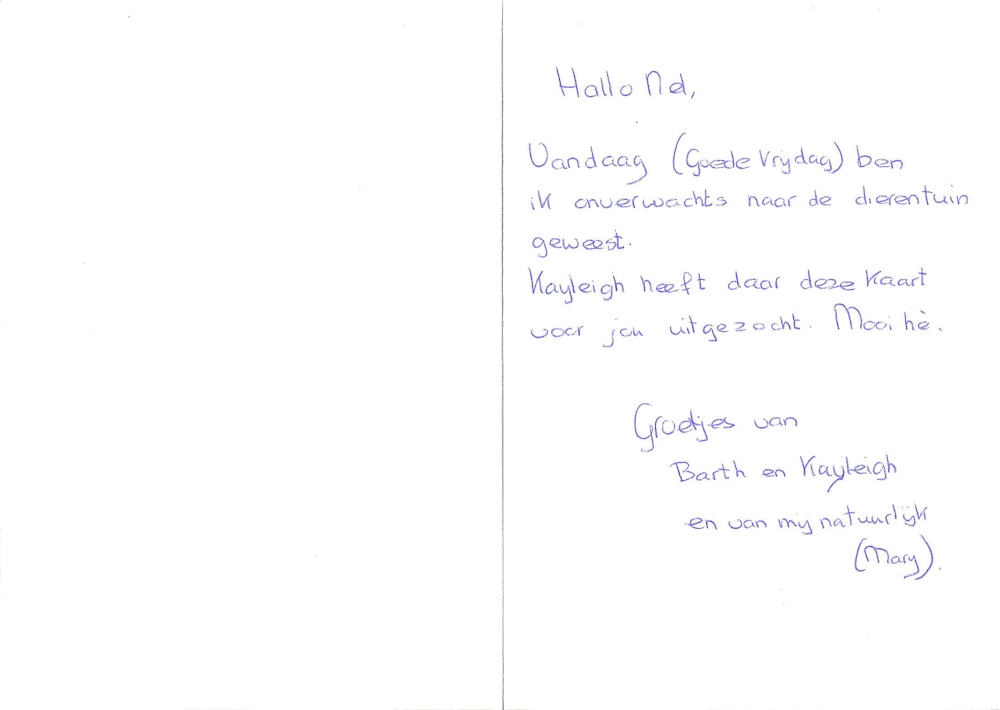 Hallo Nel,
Vandaag (Goede Vrijdag) ben
ik onverwachts naar de dierentuin
geweest.
Kayleigh heeft daar deze kaart
voor jou uitgezocht. Mooi hè.
Groetjes van
Barth en Kayleigh
en van mij natuurlijk
(Mary).